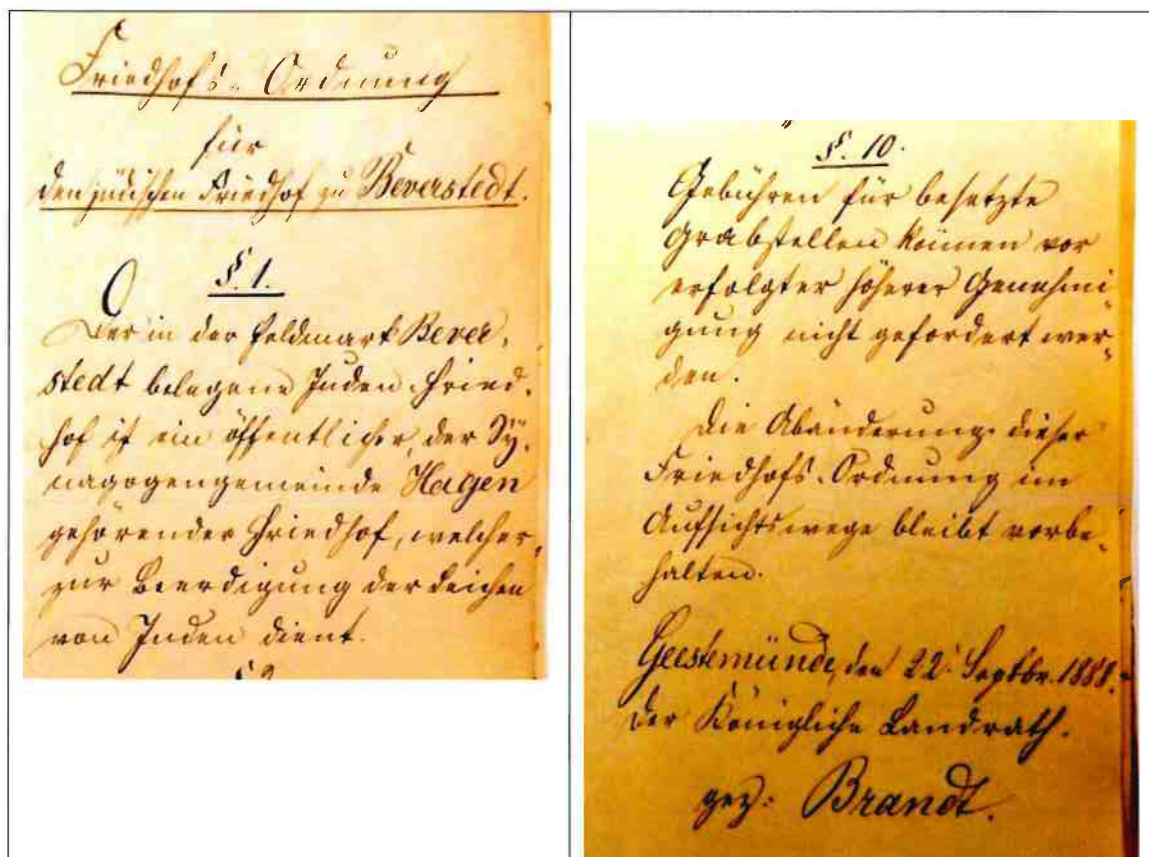 Friedhofs-Ordnung
für
den jüdischen Friedhof zu Beverstedt.
§. 1.
Der in der Feldmark Bever-
stedt belegene Juden-Fried-
hof ist ein öffentlicher, der Sy-
nagogengemeinde Hagen
gehörender Friedhof, welcher
zur Beerdigung der Leichen
von Juden dient.
§. 10.
Gebühren für besetzte
Grabstellen können vor
erfolgter höherer Genehmi-
gung nicht gefordert wer-
den.
Die Abänderung dieser
Friedhofs-Ordnung im
Aufsichtswege bleibt vorbe-
halten.
Geestemünde, den 22. Septbr. 1888.
Der Königliche Landrath.
gez: Brandt.